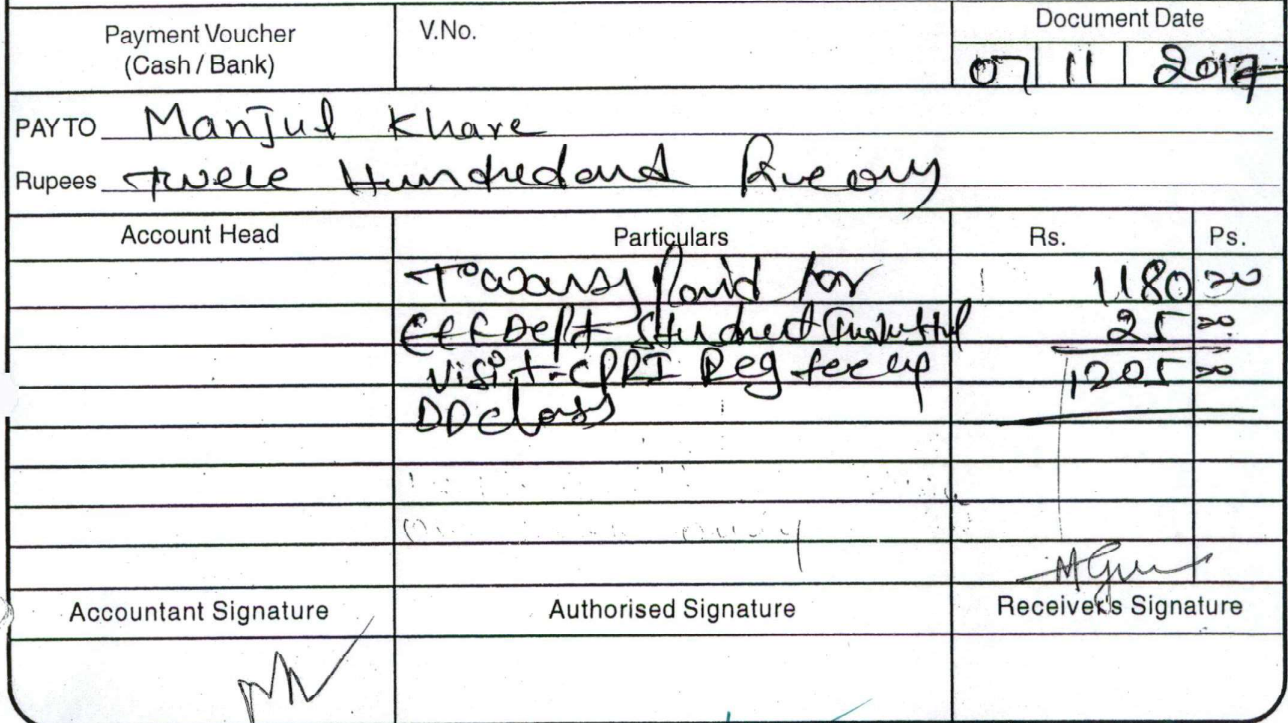 Payment Voucher
(Cash / Bank)
V.No.
Document Date
07 11 2017
PAY TO Manjul Khare
Rupees Twele Hundred and Five only
Account Head Particulars Rs. Ps.
Towards Paid for 1180 00
EEE Dept Student Industrial 25 00
Visit-CPRI Reg fee 1205 00
DD
Accountant Signature Authorised Signature Receiver's Signature